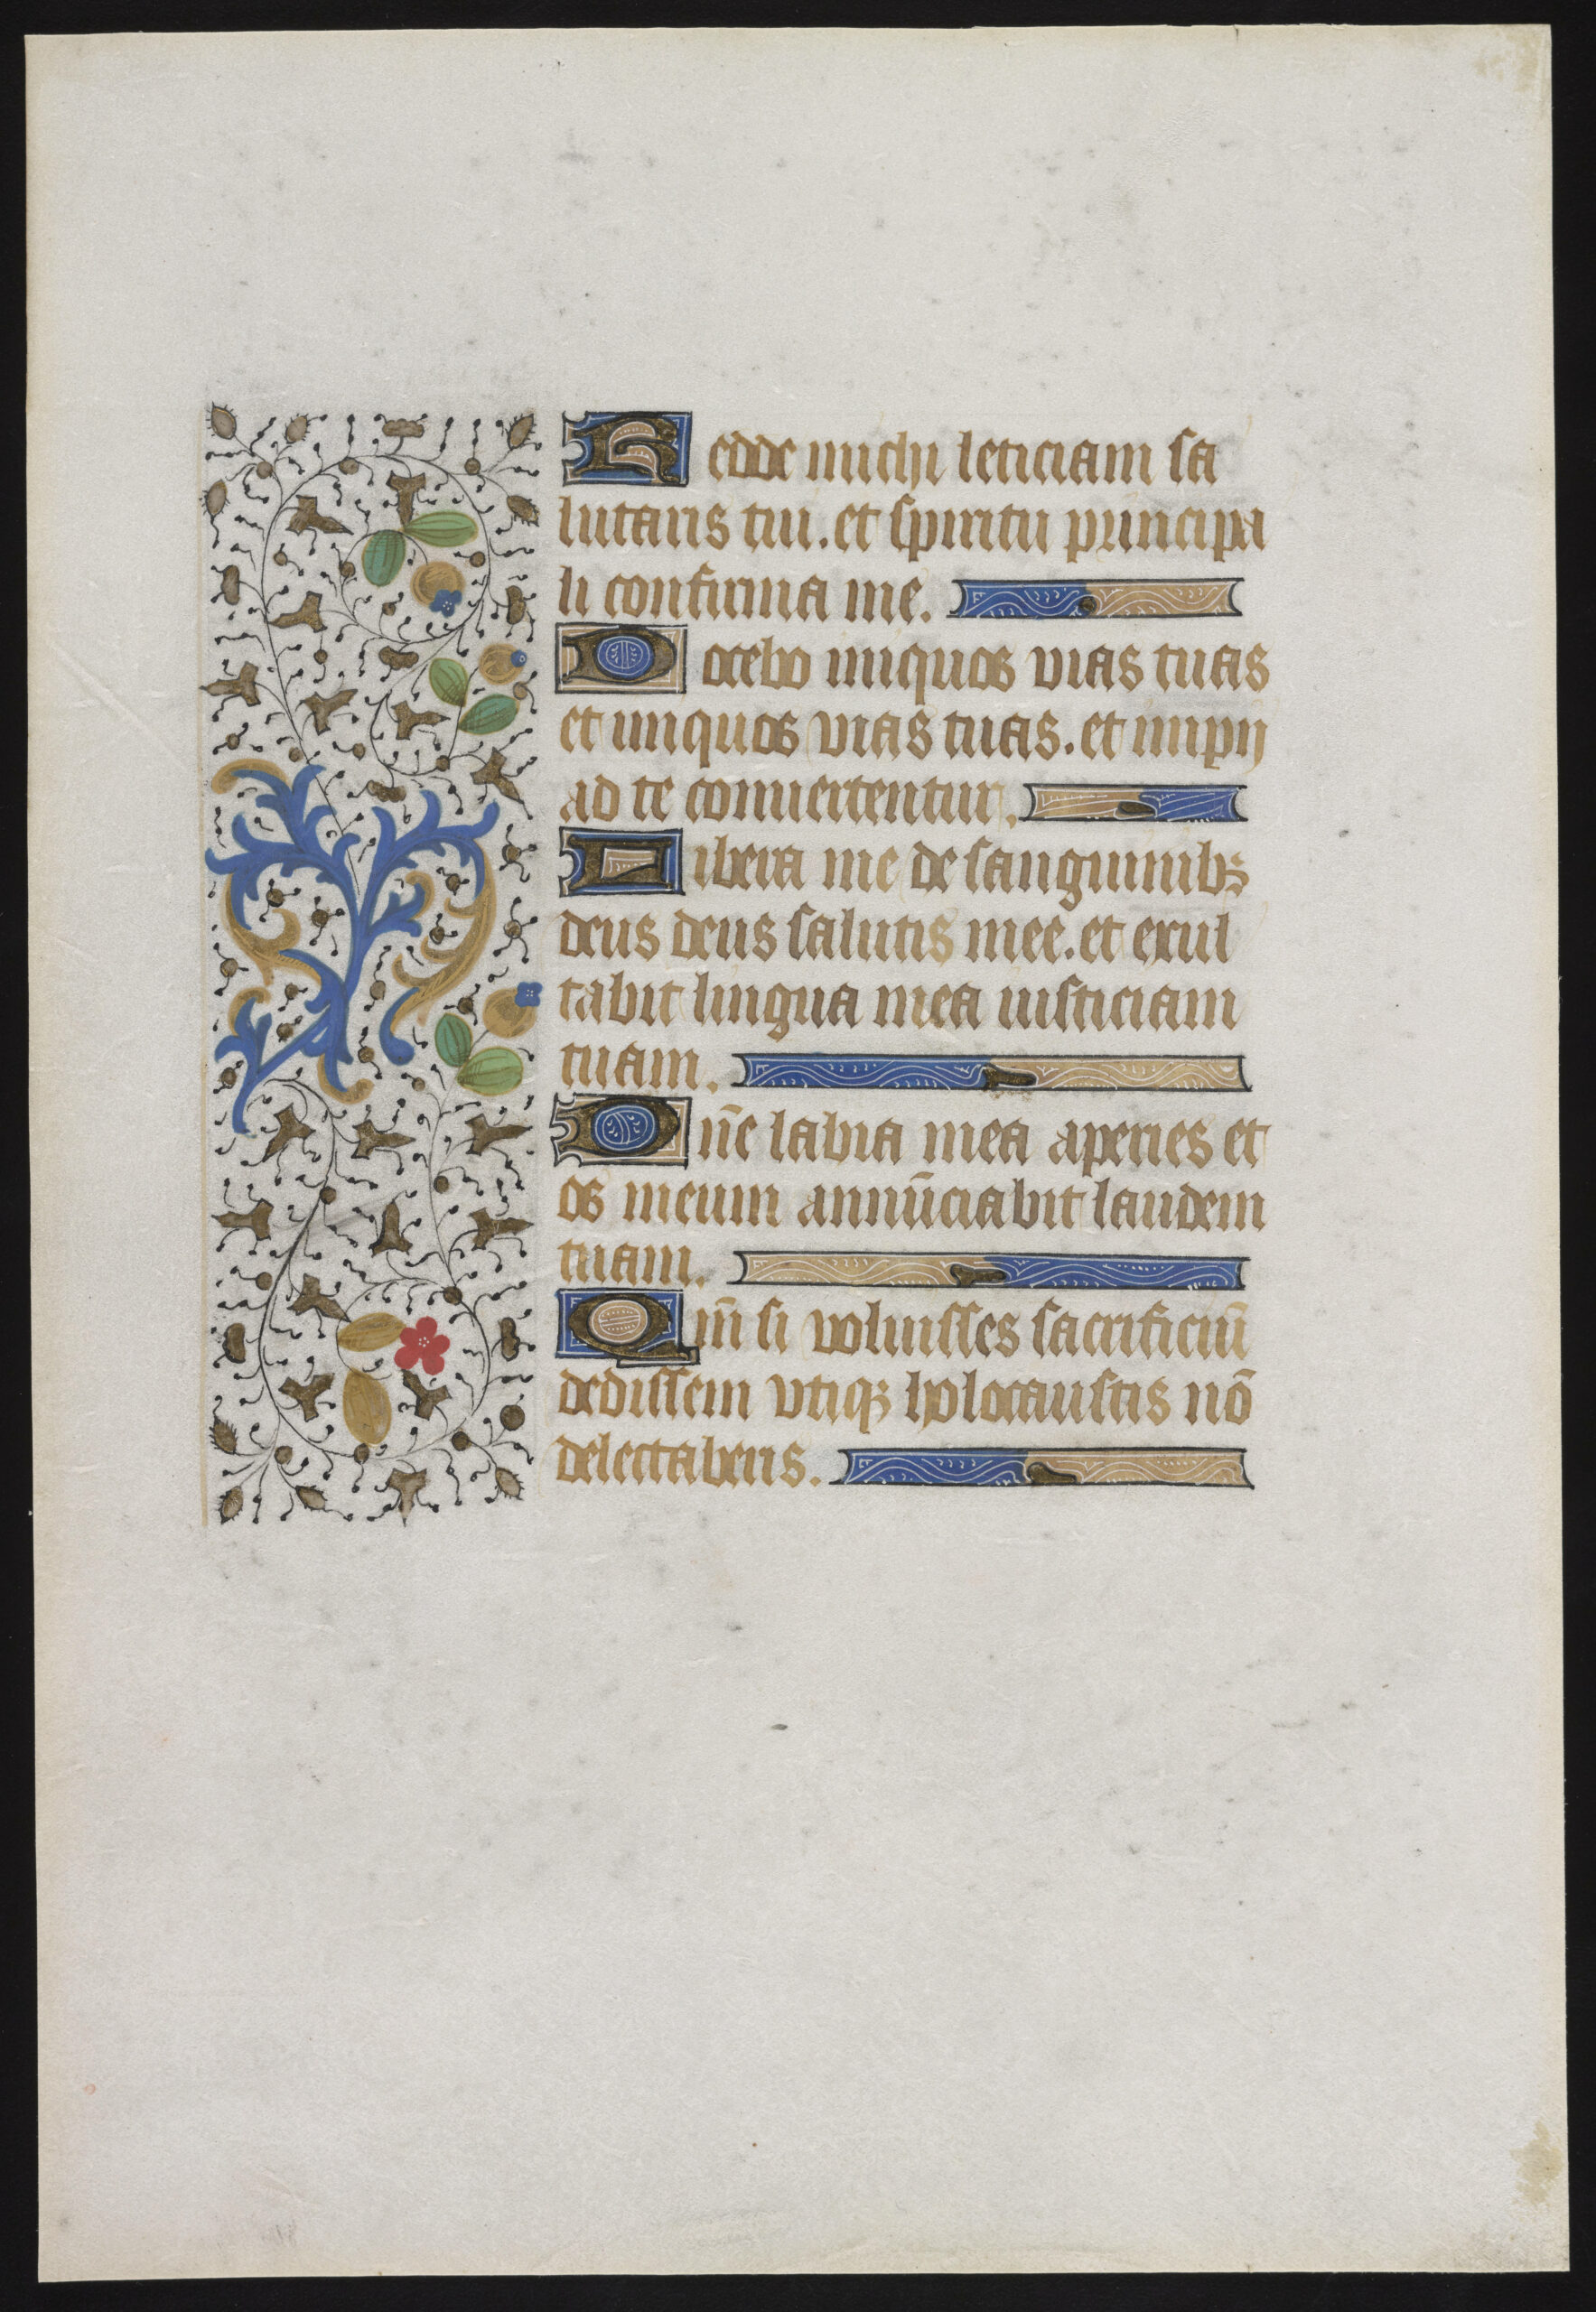 Redde michi leticiam sa
lutaris tui. et spiritu principa
li confirma me.
Docebo iniquos vias tuas
et iniquos vias tuas. et impij
ad te conuertentur.
Libera me de sanguinibꝫ
deus deus salutis mee. et exul
tabit lingua mea iusticiam
tuam.
Dñe labia mea aperies et
os meum annūciabit laudem
tuam.
Qm̄ si voluisses sacrificiū
dedissem vtiqꝫ holocaustis nō
delectaberis.